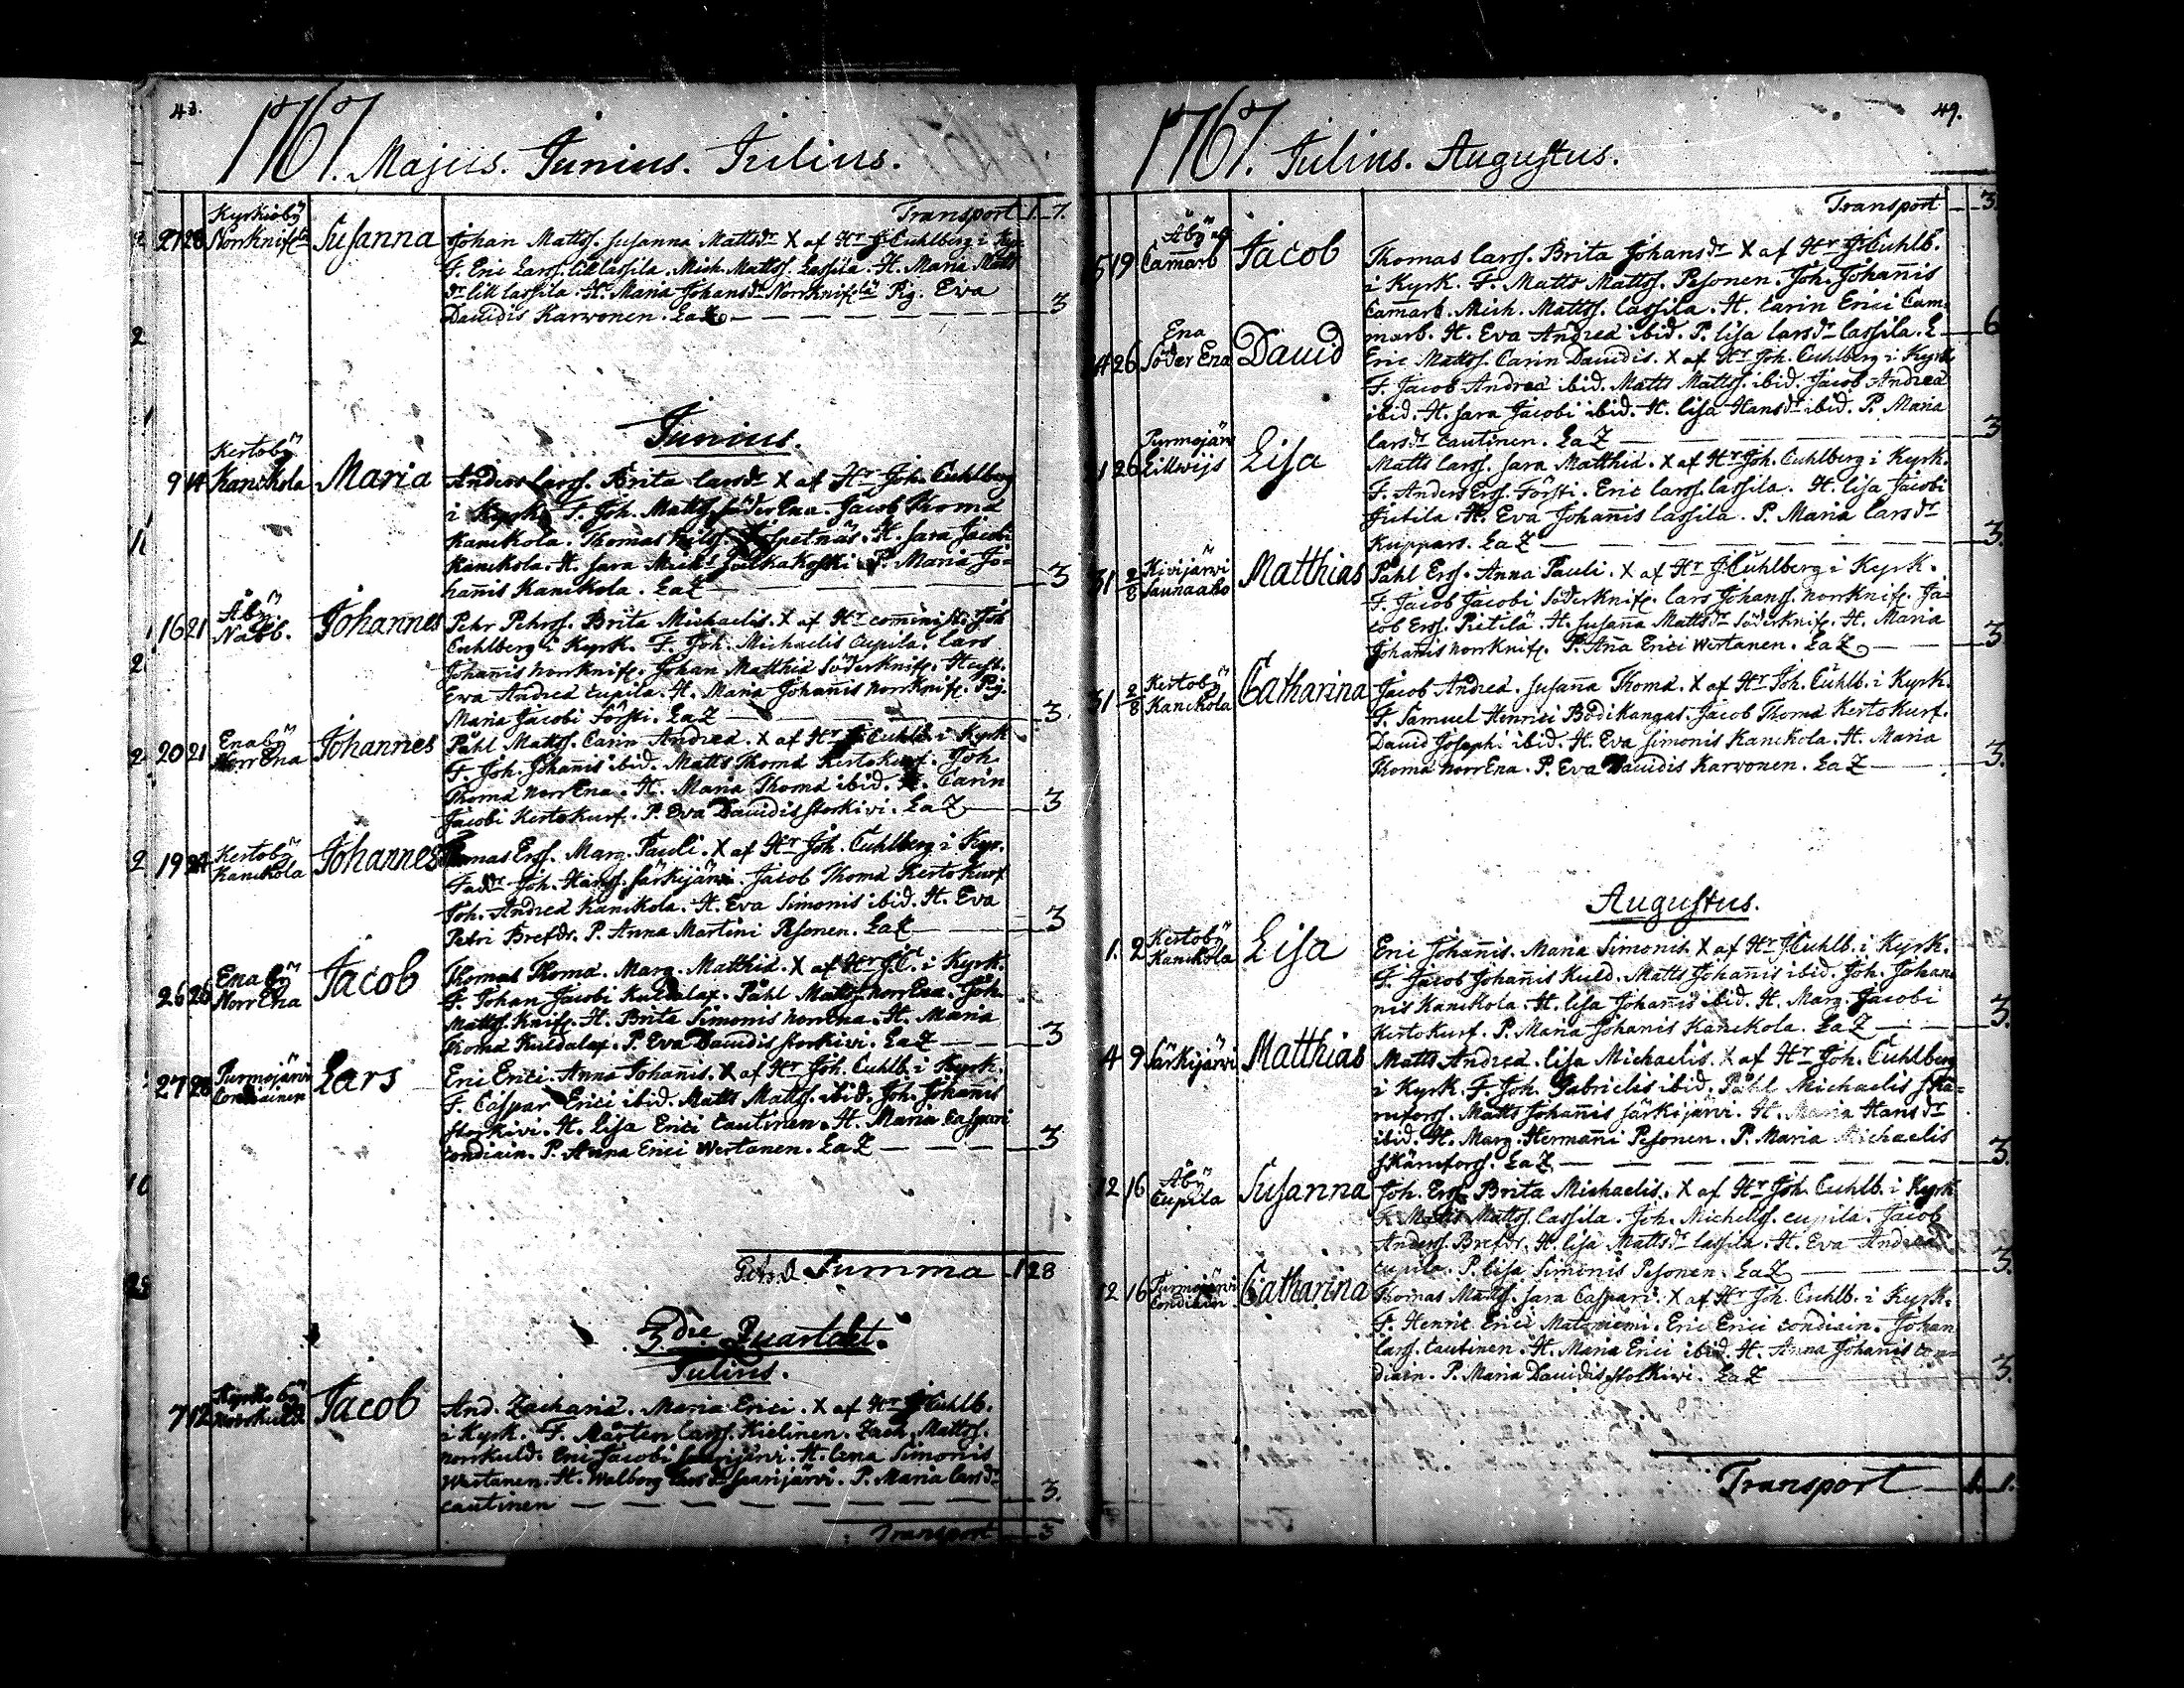 43.
1767. Majus. Junius. Julius.
Transport 1 7.
27 28 Kyrkioby Susanna Johan Mattss. Susanna Mattsdr X af Hr J: Cuhlberg i Kyr.
F. Eric Larss. Lill Lassila. Mich. Mattss. Lassila. H. Maria Matts
dr lill lassila. H. Maria Johansdr Norrknif. Pig. Eva
Davidis Karvonen. EaZ 3
Junius.
9 14 Kertoby Kanckola Maria Anders Larss. Brita Larsdr X af Hr Joh. Cuhlberg
i Kyrk. F. Joh. Mattss. Söder Ena. Jacob Thomæ
Kanckola. Thomas H. Sara Jacobi
Kanckola. H. Sara Mich. P. Maria Jo=
hannis Kanckola. EaZ 3
16 21 Åby Nabb. Johannes Pehr Pehrss. Brita Michaelis. X af Hr cominist. Joh
Cuhlberg i Kyrk. F. Joh. Michaelis Cupila. Lars
Johannis Norrknif. Johan Matthiæ Söderknif. Hust.
Eva Andreæ Cupila. H. Maria Johannis Norrknif. Pig.
Maria Jacobi Försti. EaZ 3.
20 21 Enaby Norr Ena Johannes Påhl Mattss. Carin Andreæ. X af Hr J: Cuhlb. i Kyrk
F. Joh. Johannis ibid. Matts Thomæ Kertokurf. Joh
Thomæ Norr Ena. H. Maria Thomæ ibid. H. Carin
Jacobi Kertokurf. P. Eva Davidis Storkivi. EaZ 3
19 24 Kertoby Kanckola Johannes Thomas Erss. Marg. Pauli. X af Hr Joh. Cuhlberg i Kyr.
Faddr Joh. Hanss. Särkijärvi. Jacob Thomæ Kertokurf
Joh. Andreæ Kanckola. H. Eva Simonis ibid. H. Eva
Petri Brefdr. P. Anna Martini Pesonen. EaZ 3
26 26 Enaby Norr Ena Jacob Thomas Thomæ. Marg. Matthiæ. X af Hr J: C. i Kyrk.
F Johan Jacobi Kuldalax. Påhl Mattss. Norr Ena. Joh.
Mattss. Knif. H. Brita Simonis Norrena. H. Maria
Thomæ Kuldalax. P. Eva Davidis Storkivi. EaZ 3
27 28 Purmojärvi Condiainen Lars Eric Erici. Anna Johannis. X af Hr Joh. Cuhlb. i Kyrk.
F. Caspar Erici ibid. Matts Mattss. ibid. Joh. Johannis
Storkivi. H. Lisa Erici Cautinen. H. Maria Caspari
Condiain. P. Anna Erici Wertanen. EaZ 3
Summa 1 28
3die Quartalet.
Julius.
7 12 Kyrkoby Norrkuld. Jacob And. Zachariæ. Maria Erici. X af Hr J: Cuhlb.
i Kyrk. F. Mårten Larss. Kielinen. Zach. Mattss.
Norrkuld. Eric Jacobi Saarijärvi. H. Lena Simonis
Wertanen. H. Walborg Larsdr Saarijärvi. P. Maria Larsdr
Cautinen 3.
Transport 3
49.
1767. Julius. Augustus.
Transport 3.
15 19 Åby Camarb Jacob Thomas Larss. Brita Johansdr X af Hr J: Cuhlb.
i Kyrk. F. Matts Mattss. Pesonen. Joh. Johannis
Camarb. Mich. Mattss. Lassila. H. Carin Erici Cam=
marb. H. Eva Andreæ ibid. P. Lisa Larsdr Lassila. E 6
26 Ena Söder Ena David Eric Mattss. Carin Davidis. X af Hr Joh. Cuhlberg i Kyrk
F. Jacob Andreæ ibid. Matts Mattss. ibid. Jacob Andreæ
ibid. H. Sara Jacobi ibid. H. Lisa Hansdr ibid. P. Maria
Larsdr Cautinen. EaZ 3
26 Purmojärv Lillwijs Lisa Matts Larss. Sara Matthiæ. X af Hr Joh. Cuhlberg i Kyrk.
F. Anders Erss. Försti. Eric Larss. Lassila. H. Lisa Jacobi
Jutila. H. Eva Johannis Lassila. P. Maria Larsdr
Kuppars. EaZ 3.
31 2/8 Kivijärvi Saunaaho Matthias Påhl Erss. Anna Pauli. X af Hr J: Cuhlberg i Kyrk.
F. Jacob Jacobi Söderknif. Lars Johanss. Norrknif. Ja=
cob Erss. Pietilä. H. Susanna Mattsdr Söderknif. H. Maria
Johannis Norrknif. P. Anna Erici Wertanen. EaZ 3
31 2/8 Kertoby Kanckola Catharina Jacob Andreæ. Susanna Thomæ. X af Hr Joh. Cuhlb. i Kyrk.
F. Samuel Henrici Bodikangas. Jacob Thomæ Kertokurf.
David Josephi ibid. H. Eva Simonis Kanckola. H. Maria
Thomæ Norr Ena. P. Eva Davidis Karvonen. EaZ 3.
Augustus.
1. 2 Kertoby Kanckola Lisa Eric Johannis. Maria Simonis. X af Hr J: Cuhlb. i Kyrk.
F. Jacob Johannis Kuld. Matts Johannis ibid. Joh. Johan
nis Kanckola. H. Lisa Johannis ibid. H. Marg. Jacobi
Kertokurf. P. Maria Johannis Kanckola. EaZ 3.
4 9 Särkijärvi Matthias Matts Andreæ. Lisa Michaelis. X af Hr Joh. Cuhlberg
i Kyrk. F. Joh. Gabrielis ibid. Påhl Michaelis Skä=
merforss. Matts Johannis Särkijärvi. H. Maria Hansdr
ibid. H. Marg. Hermanni Pesonen. P. Maria Michaelis
EaZ 3.
12 16 Åby Cupila Susanna Joh. Erss. Brita Michaelis. X af Hr Joh. Cuhlb. i Kyrk
F. Matts Mattss. Lassila. Joh. Michelss. Cupila. Jacob
Anderss. Brefdr. H. Lisa Mattsdr Lassila. H. Eva Andreæ
Cupila. P. Lisa Simonis Pesonen. EaZ 3.
12 16 Purmojärvi Condiain Catharina Thomas Mattss. Sara Caspari. X af Hr Joh. Cuhlb. i Kyrk.
F. Henric Erici Mataniemi. Eric Erici Condiain. Johan
Larss. Cautinen. H. Maria Erici ibid. H. Anna Johannis Con=
diain. P. Maria Davidis Storkivi. EaZ 3.
Transport 1. 1.